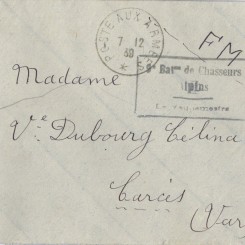 POSTE AUX ARMÉES
7 - 12
39
F M
9e Baton de Chasseurs
Alpins
Le Vaguemestre
Madame
Ve Dubourg Célina
Carcès
(Var)